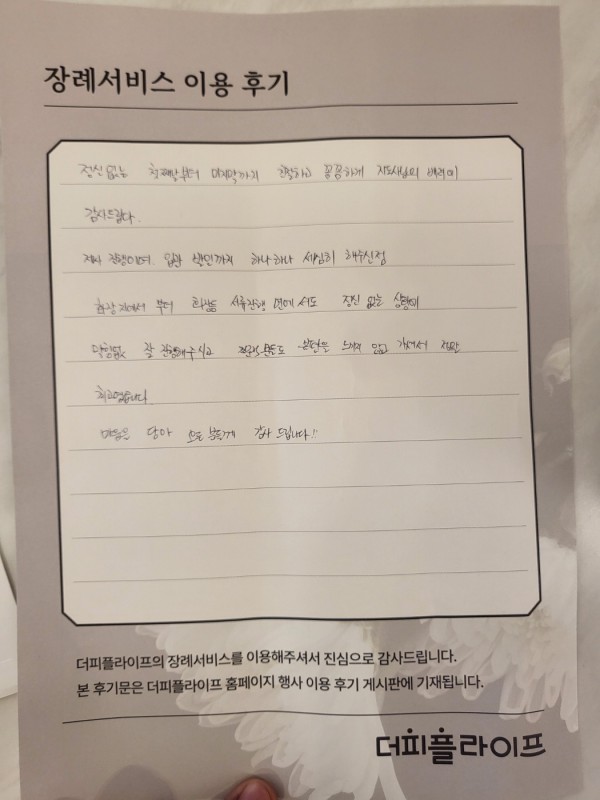 장례서비스 이용 후기
정신없는 첫째날부터 마지막까지 친절하고 꼼꼼하게 지도사님의 배려에
감사드립니다.
제사 진행이며 입관 발인까지 하나하나 세심히 해주신점
화장장에서 부터 서류진행 면에서도 정신 없는 상황에
막힘없 잘 진행해주시고 부담을 느끼지 않고 가셔서 정말
최고였습니다.
마음을 담아 모든 분들께 감사 드립니다!!
더피플라이프의 장례서비스를 이용해주셔서 진심으로 감사드립니다.
본 후기문은 더피플라이프 홈페이지 행사 이용 후기 게시판에 기재됩니다.
더피플라이프